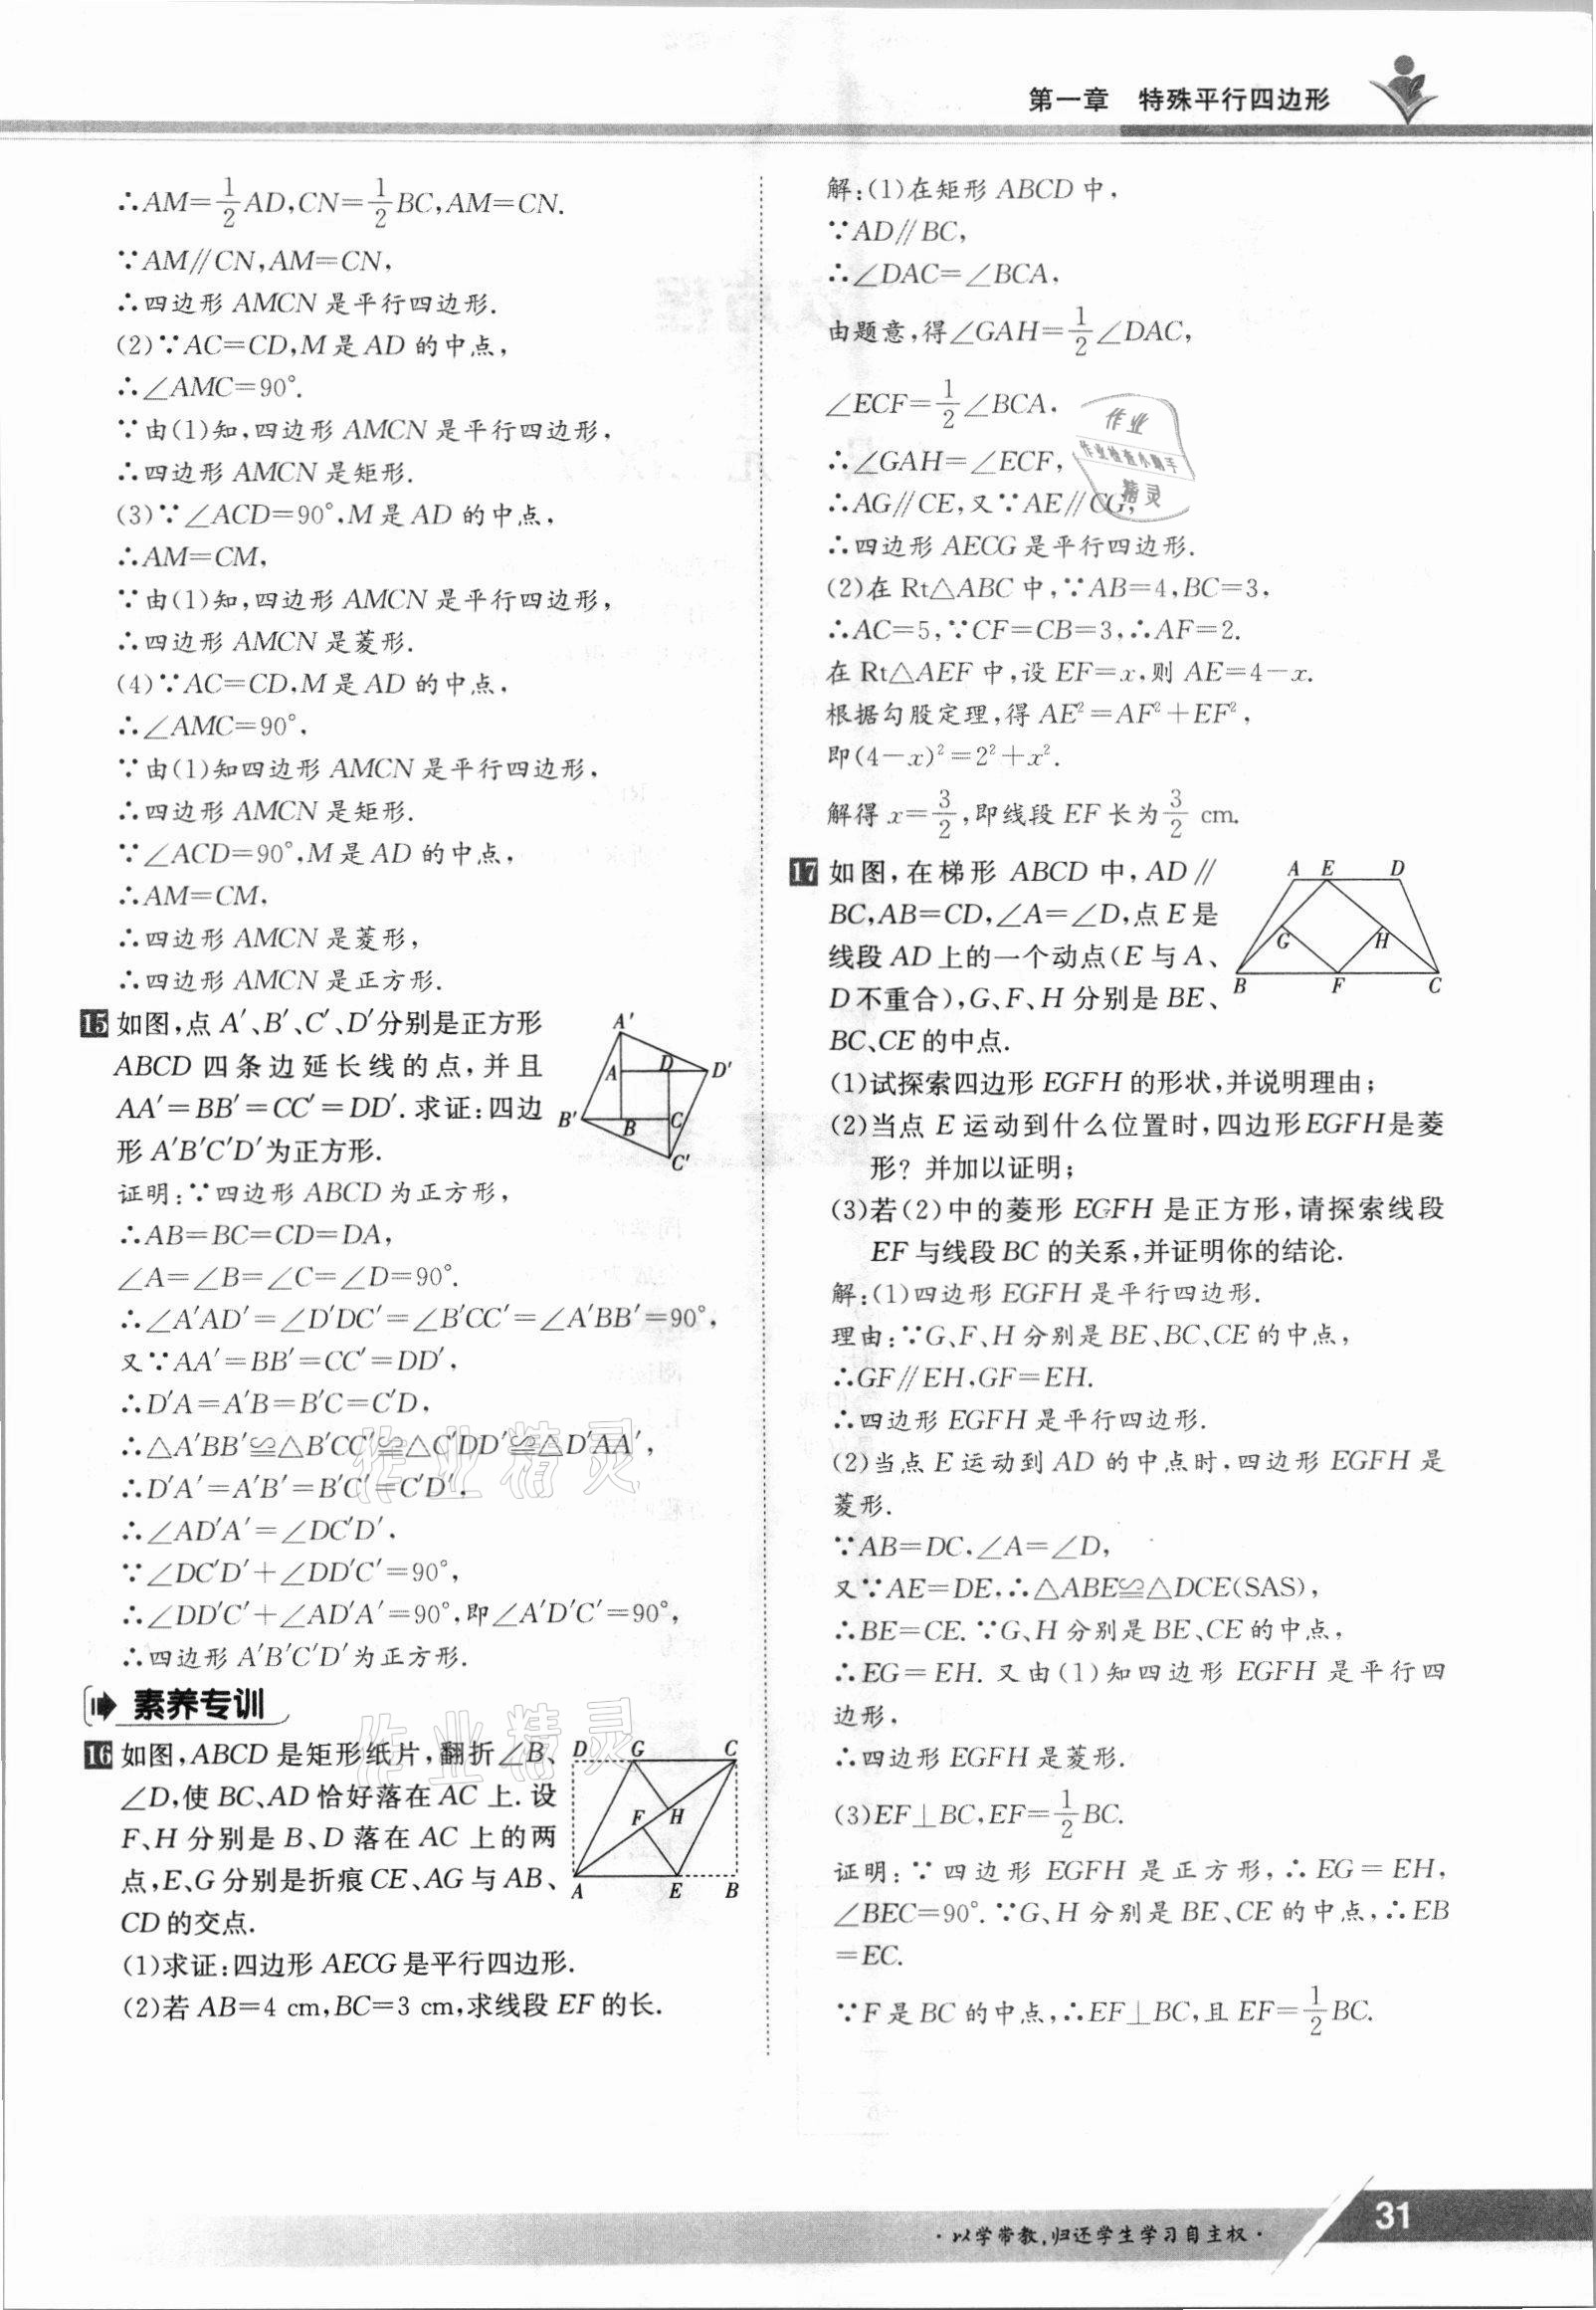 第一章 特殊平行四边形
∴AM=1/2AD,CN=1/2BC,AM=CN.
∵AM∥CN,AM=CN,
∴四边形 AMCN 是平行四边形.
(2)∵AC=CD,M 是 AD 的中点,
∴∠AMC=90°.
∵由(1)知,四边形 AMCN 是平行四边形,
∴四边形 AMCN 是矩形.
(3)∵∠ACD=90°,M 是 AD 的中点,
∴AM=CM,
∵由(1)知,四边形 AMCN 是平行四边形,
∴四边形 AMCN 是菱形.
(4)∵AC=CD,M 是 AD 的中点,
∴∠AMC=90°,
∵由(1)知四边形 AMCN 是平行四边形,
∴四边形 AMCN 是矩形.
∵∠ACD=90°,M 是 AD 的中点,
∴AM=CM,
∴四边形 AMCN 是菱形,
∴四边形 AMCN 是正方形.
15 如图,点 A′、B′、C′、D′分别是正方形
ABCD 四条边延长线的点,并且
AA′=BB′=CC′=DD′.求证:四边
形 A′B′C′D′为正方形.
A′
A
D
D′
B′
B
C
C′
证明:∵四边形 ABCD 为正方形,
∴AB=BC=CD=DA,
∠A=∠B=∠C=∠D=90°.
∴∠A′AD′=∠D′DC′=∠B′CC′=∠A′BB′=90°,
又∵AA′=BB′=CC′=DD′,
∴D′A=A′B=B′C=C′D,
∴△A′BB′≌△B′CC′≌△C′DD′≌△D′AA′,
∴D′A′=A′B′=B′C′=C′D′,
∴∠AD′A′=∠DC′D′,
∵∠DC′D′+∠DD′C′=90°,
∴∠DD′C′+∠AD′A′=90°,即∠A′D′C′=90°,
∴四边形 A′B′C′D′为正方形.
素养专训
16 如图,ABCD 是矩形纸片,翻折∠B、
∠D,使 BC、AD 恰好落在 AC 上.设
F、H 分别是 B、D 落在 AC 上的两
点,E、G 分别是折痕 CE、AG 与 AB、
CD 的交点.
D G C
F H
A E B
(1)求证:四边形 AECG 是平行四边形.
(2)若 AB=4 cm,BC=3 cm,求线段 EF 的长.
解:(1)在矩形 ABCD 中,
∵AD∥BC,
∴∠DAC=∠BCA,
由题意,得∠GAH=1/2∠DAC,
∠ECF=1/2∠BCA,
∴∠GAH=∠ECF,
∴AG∥CE,又∵AE∥CG,
∴四边形 AECG 是平行四边形.
(2)在 Rt△ABC 中,∵AB=4,BC=3,
∴AC=5,∵CF=CB=3,∴AF=2.
在 Rt△AEF 中,设 EF=x,则 AE=4−x.
根据勾股定理,得 AE²=AF²+EF²,
即(4−x)²=2²+x².
解得 x=3/2,即线段 EF 长为3/2 cm.
17 如图,在梯形 ABCD 中,AD∥
BC,AB=CD,∠A=∠D,点 E 是
线段 AD 上的一个动点(E 与 A、
D 不重合),G、F、H 分别是 BE、
BC、CE 的中点.
A E D
G H
B F C
(1)试探索四边形 EGFH 的形状,并说明理由;
(2)当点 E 运动到什么位置时,四边形 EGFH 是菱
形? 并加以证明;
(3)若(2)中的菱形 EGFH 是正方形,请探索线段
EF 与线段 BC 的关系,并证明你的结论.
解:(1)四边形 EGFH 是平行四边形.
理由:∵G、F、H 分别是 BE、BC、CE 的中点,
∴GF∥EH,GF=EH.
∴四边形 EGFH 是平行四边形.
(2)当点 E 运动到 AD 的中点时,四边形 EGFH 是
菱形.
∵AB=DC,∠A=∠D,
又∵AE=DE,∴△ABE≌△DCE(SAS),
∴BE=CE.∵G、H 分别是 BE、CE 的中点,
∴EG=EH.又由(1)知四边形 EGFH 是平行四
边形,
∴四边形 EGFH 是菱形.
(3)EF⊥BC,EF=1/2BC.
证明:∵四边形 EGFH 是正方形,∴EG=EH,
∠BEC=90°.∵G、H 分别是 BE、CE 的中点,∴EB
=EC.
∵F 是 BC 的中点,∴EF⊥BC,且 EF=1/2BC.
作业
作业检查小助手
精灵
作业精灵
作业精灵
·以学带教,归还学生学习自主权·
31